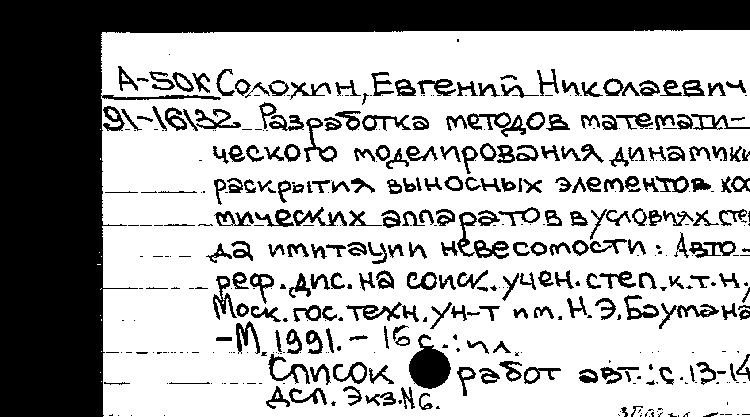 А-50К Солохин, Евгений Николаевич
91-16132 Разработка методов математи-
ческого моделирования динамики
раскрытия выносных элементов кос
мических аппаратов в условиях стен
да имитации невесомости: Авто-
реф. дис. на соиск. учен. степ. к.т.н.
Моск. гос. техн. ун-т им. Н.Э. Баумана
-М. 1991. - 16 с.: ил.
Список работ авт.: с. 13-14
ДСП. Экз. №6.